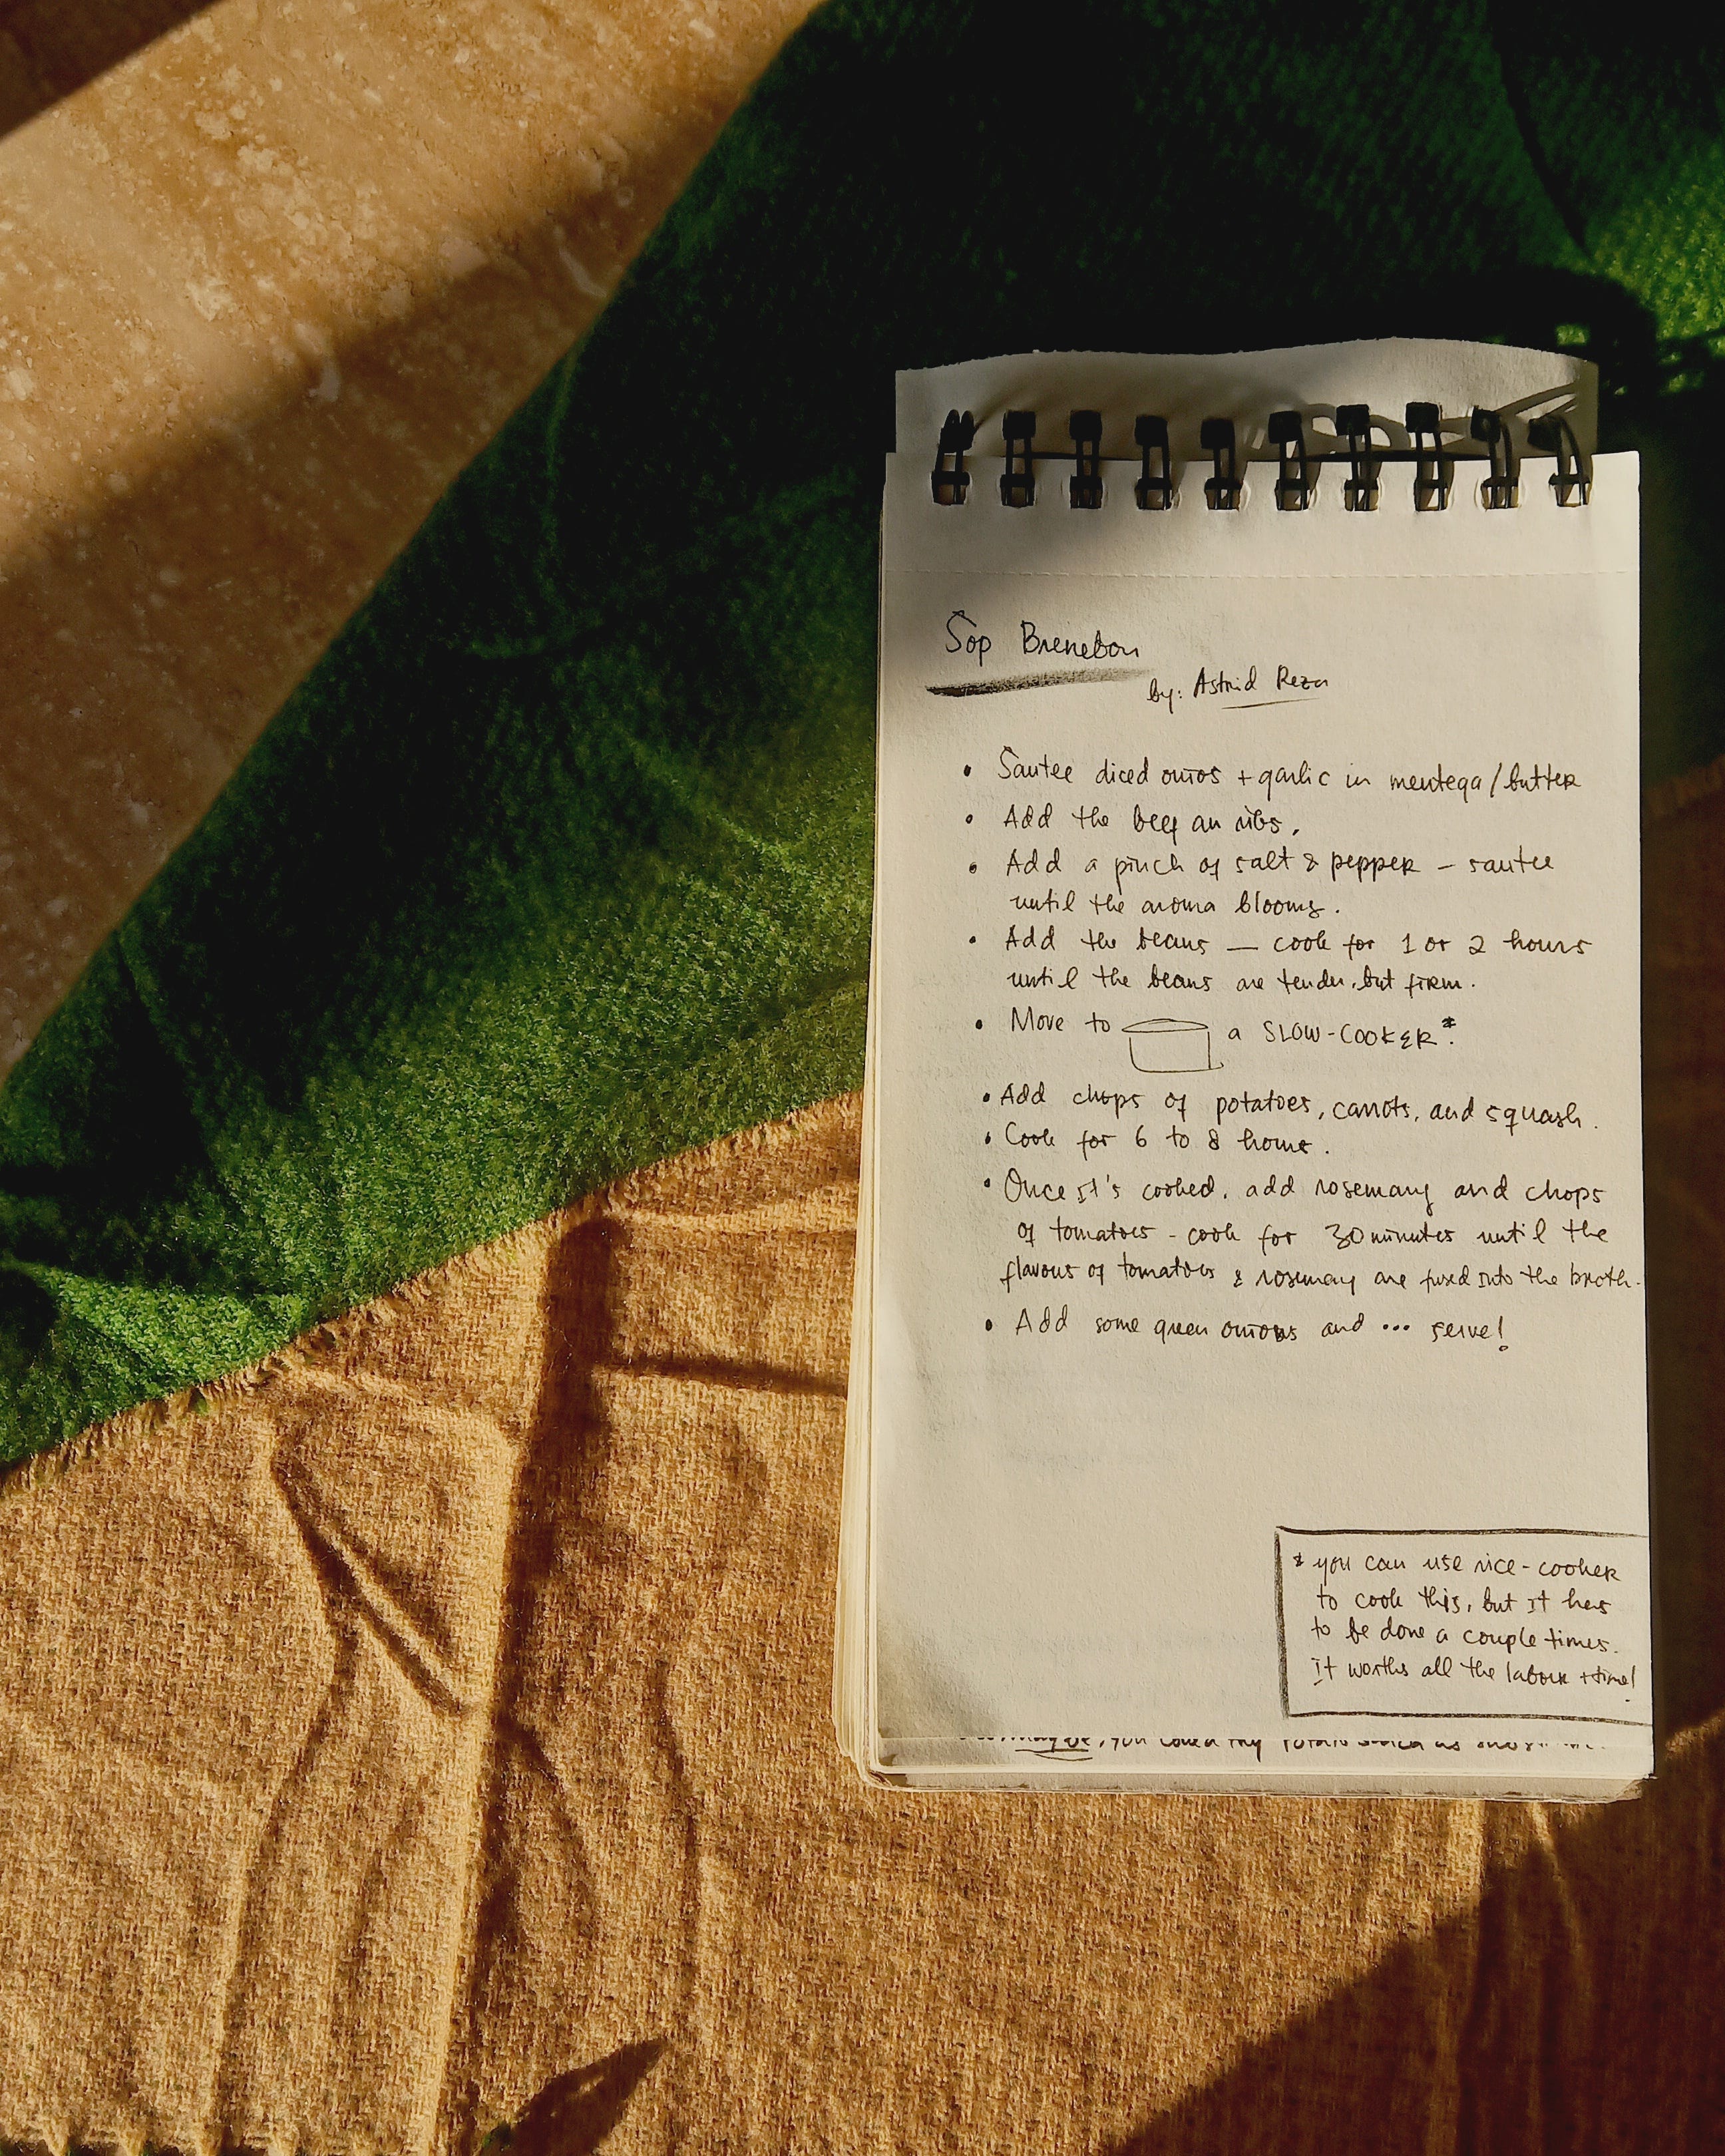 Sop Brenebon
by: Astrid Reza
• Sautee diced onios + garlic in mentega/butter
• Add the beef an ribs.
• Add a pinch of salt & pepper – sautee
until the aroma blooms.
• Add the beans — cook for 1 or 2 hours
until the beans are tender, but firm.
• Move to a SLOW-COOKER*.
• Add chops of potatoes, carrots, and squash.
• Cook for 6 to 8 hours.
• Once it's cooked, add rosemary and chops
of tomatoes - cook for 30 minutes until the
flavous of tomatoes & rosemary are fused into the broth.
• Add some green onions and ... serve!
* you can use rice-cooker
to cook this, but it has
to be done a couple times.
It worths all the labour + time!
maybe, you could try potato